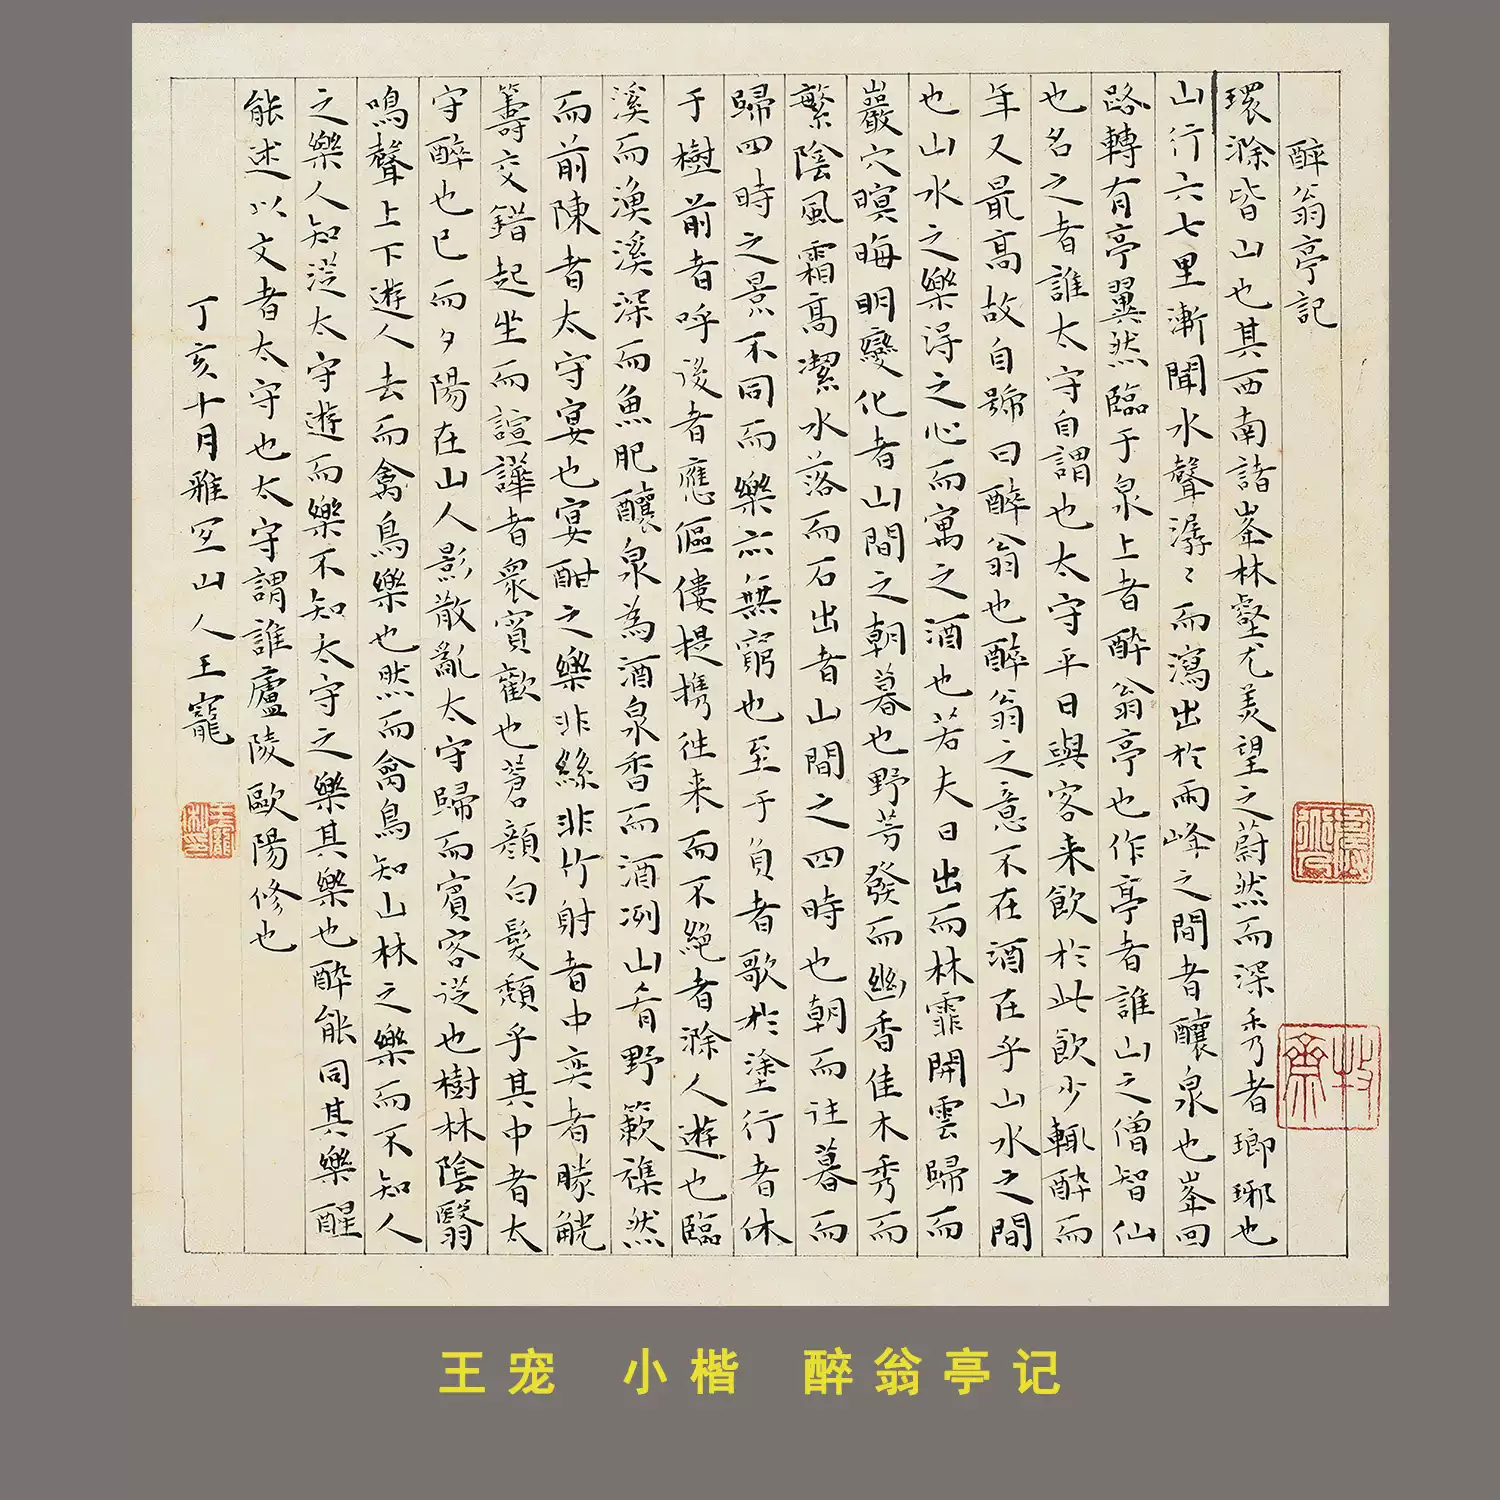 醉翁亭記
環滁皆山也其西南諸峯林壑尤美望之蔚然而深秀者瑯琊也
山行六七里漸聞水聲潺〻而瀉出於兩峰之間者釀泉也峯回
路轉有亭翼然臨于泉上者醉翁亭也作亭者誰山之僧智仙
也名之者誰太守自謂也太守平日與客来飲於此飲少輒醉而
年又最高故自號曰醉翁也醉翁之意不在酒在乎山水之間
也山水之樂淂之心而寓之酒也若夫日出而林霏開雲歸而
巖穴暝晦明變化者山間之朝暮也野芳發而幽香佳木秀而
繁陰風霜高潔水落而石出者山間之四時也朝而往暮而
歸四時之景不同而樂亦無窮也至于負者歌於塗行者休
于樹前者呼後者應傴僂提携往来而不絶者滁人遊也臨
溪而漁溪深而魚肥釀泉為酒泉香而酒冽山肴野蔌襍然
而前陳者太守宴也宴酣之樂非絲非竹射者中奕者勝觥
籌交錯起坐而諠譁者衆賓歡也蒼顔白髮頹乎其中者太
守醉也已而夕陽在山人影散亂太守歸而賓客從也樹林陰翳
鳴聲上下遊人去而禽鳥樂也然而禽鳥知山林之樂而不知人
之樂人知從太守遊而樂不知太守之樂其樂也醉能同其樂醒
能述以文者太守也太守謂誰廬陵歐陽修也
丁亥十月雅宜山人王寵
王寵 小楷 醉翁亭記